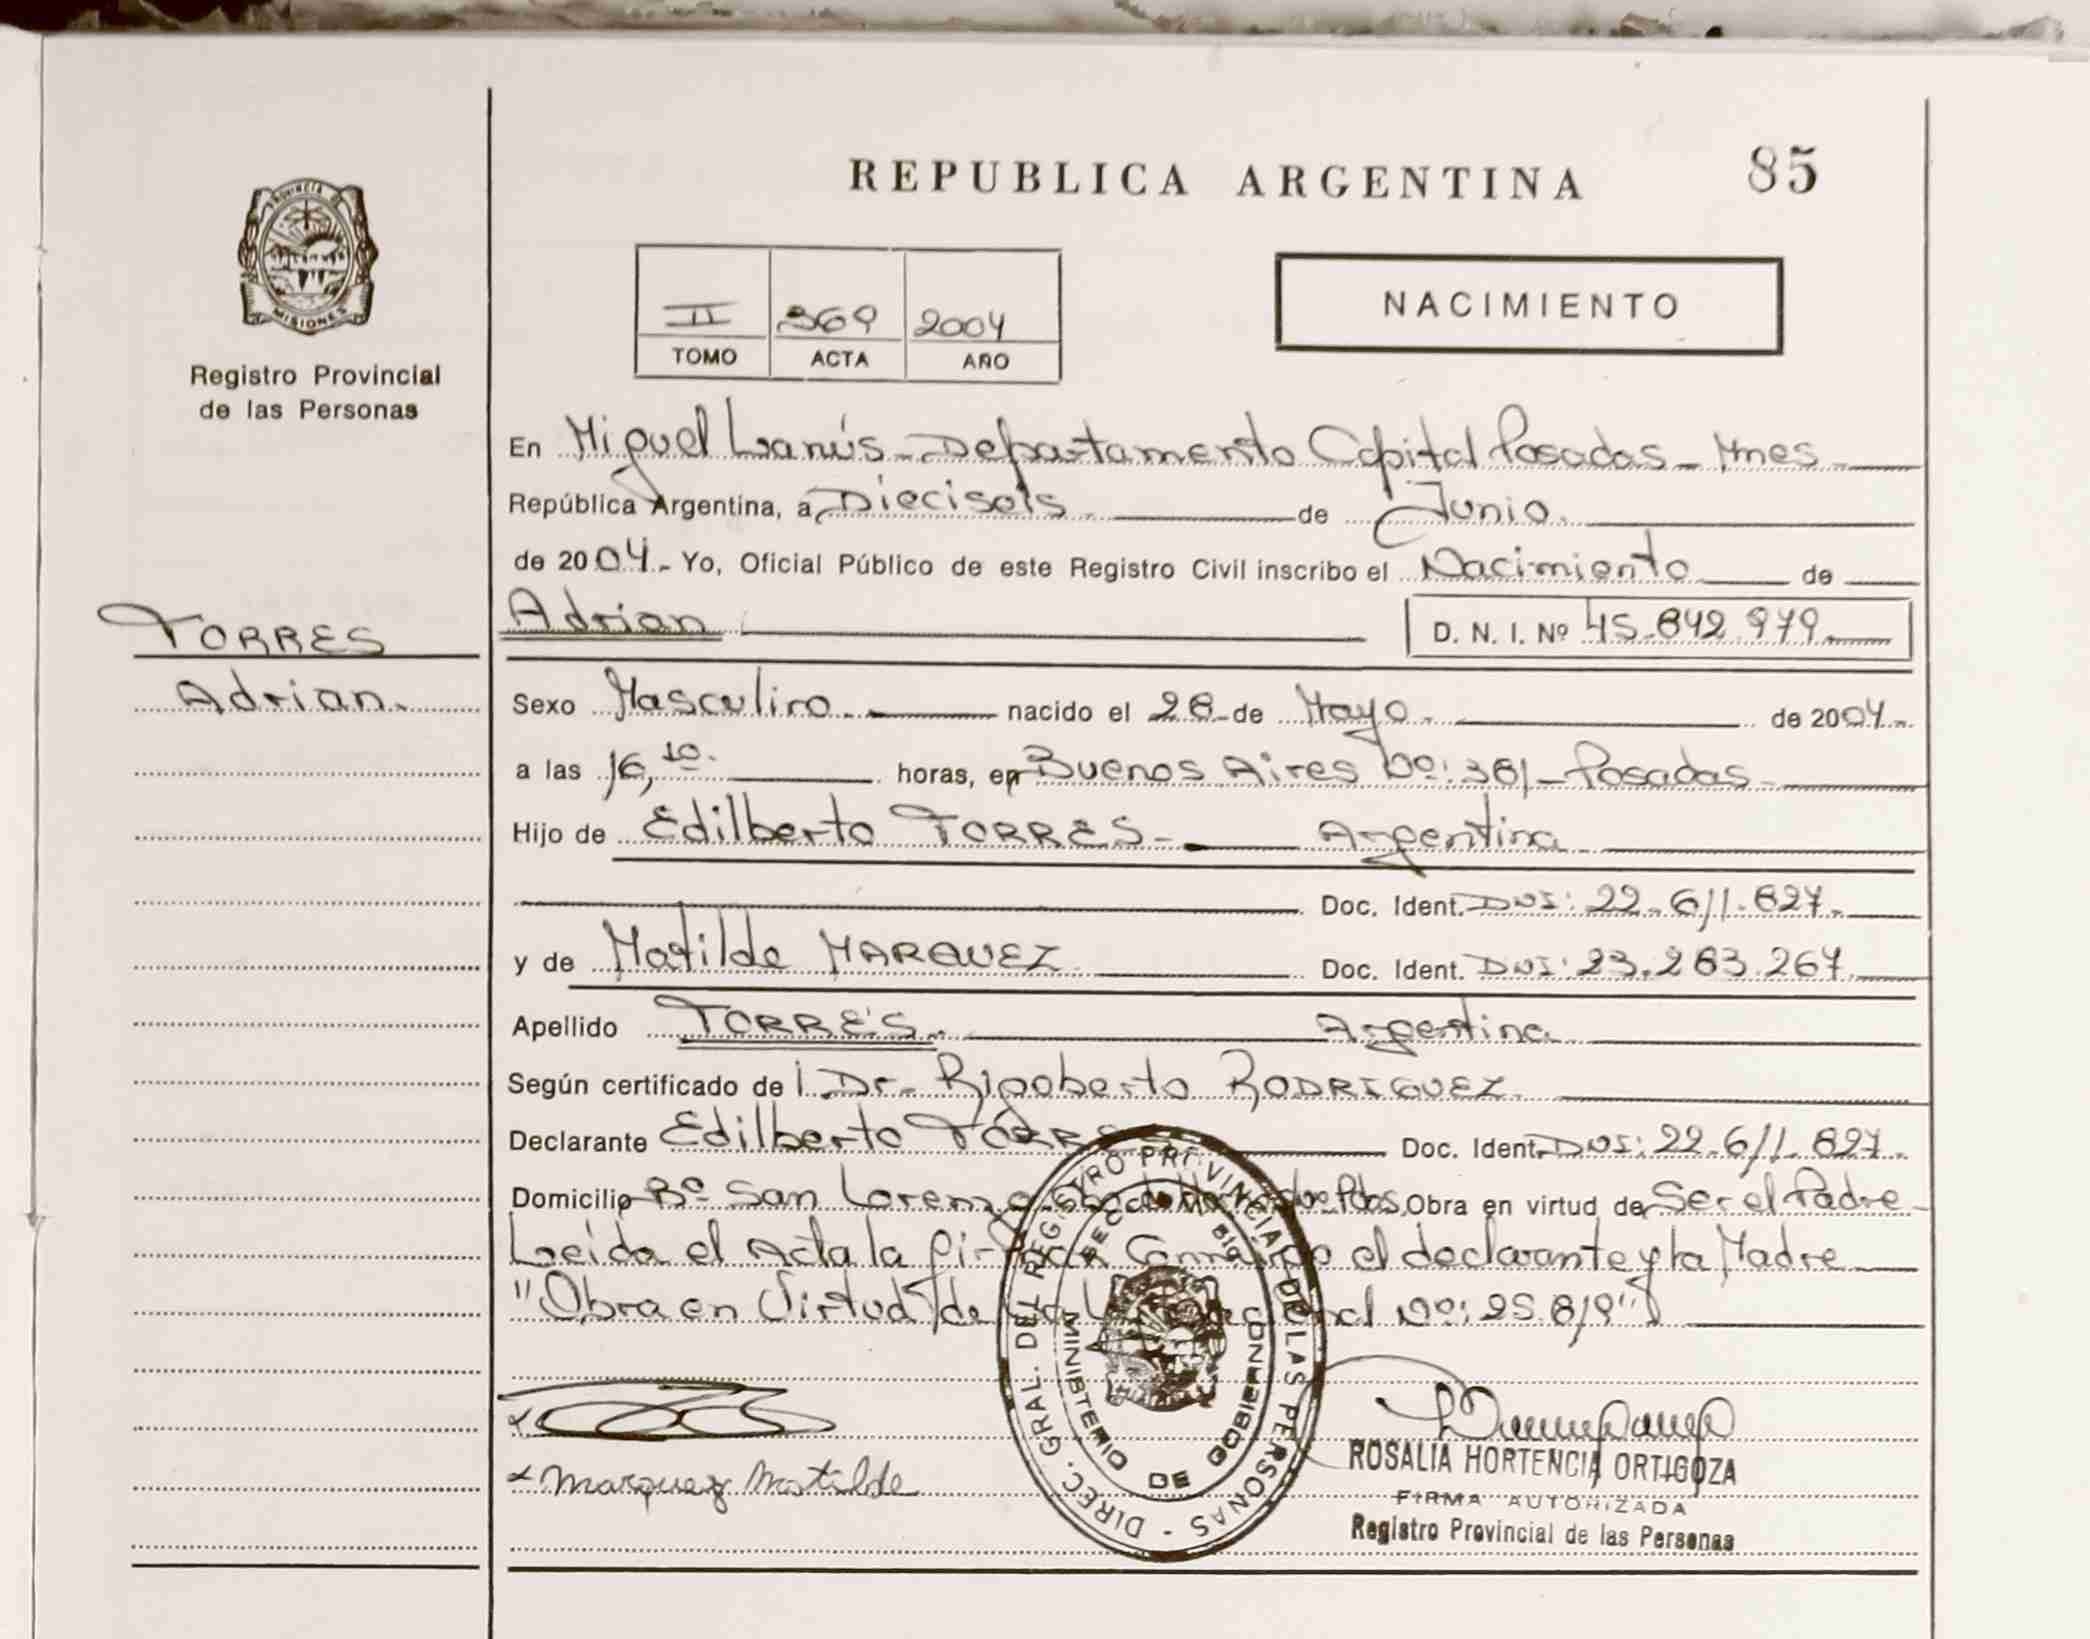 REPUBLICA ARGENTINA
85
PROVINCIA DE
MISIONES
Registro Provincial
de las Personas
II 369 2004
TOMO ACTA AÑO
NACIMIENTO
En Miguel Lanús - Departamento Capital Posadas - Mnes
República Argentina, a Dieciseis de Junio
de 2004 - Yo, Oficial Público de este Registro Civil inscribo el Nacimiento de
TORRES
Adrian
Adrian D. N. I. Nº 45.842.979
Sexo Masculino nacido el 28 de Mayo de 2004
a las 16,10 horas, en Buenos Aires Nº: 381 - Posadas
Hijo de Edilberto TORRES - Argentina
Doc. Ident. DNI: 22.611.827
y de Matilde MARQUEZ Doc. Ident. DNI: 23.283.267
Apellido TORRES Argentina
Según certificado de l. Dr. Rigoberto RODRIGUEZ
Declarante Edilberto TORRES Doc. Ident. DNI: 22.611.827
Domicilio Bº San Lorenzo Obra en virtud de Ser el Padre
Leida el Acta la firman Conmigo el declarante y la Madre
"Obra en Virtud de la Ley Nacional Nº: 25.819"
Marquez Matilde
DIREC. GRAL. DEL REGISTRO PROVINCIAL DE LAS PERSONAS
MINISTERIO DE GOBIERNO
ROSALIA HORTENCIA ORTIGOZA
FIRMA AUTORIZADA
Registro Provincial de las Personas